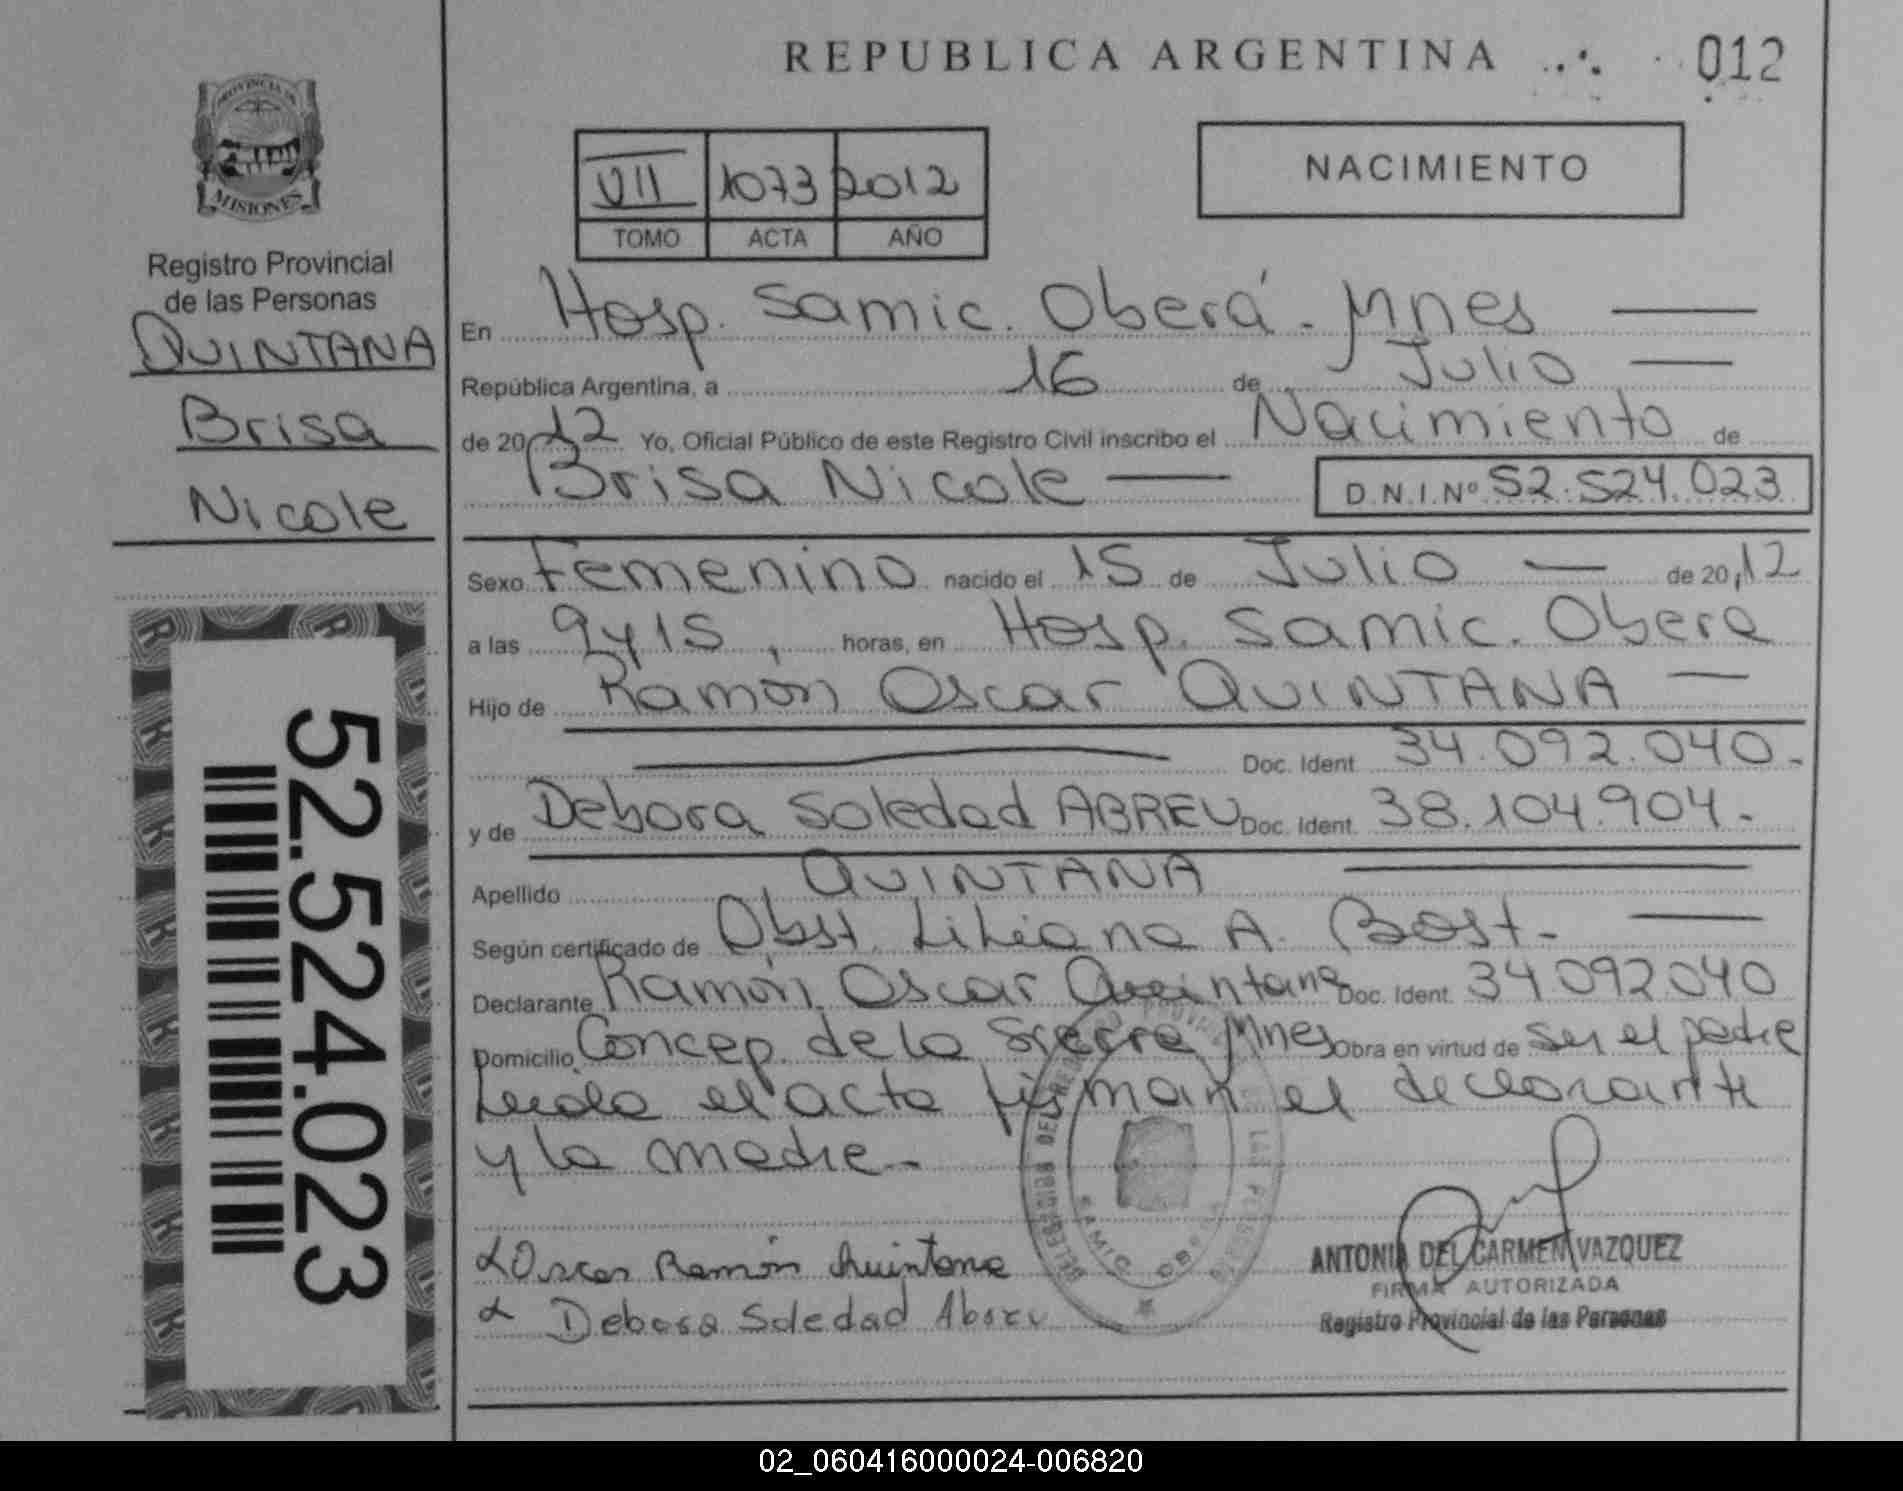 REPUBLICA ARGENTINA
012
PROVINCIA DE
MISIONES
Registro Provincial
de las Personas
QUINTANA
Brisa
Nicole
52.524.023
VII 1073 2012
TOMO ACTA AÑO
NACIMIENTO
En Hosp. Samic. Oberá. Mnes
República Argentina, a 16 de Julio
de 2012 Yo, Oficial Público de este Registro Civil inscribo el Nacimiento de
Brisa Nicole D.N.I.Nº 52.524.023
Sexo Femenino nacido el 15 de Julio de 2012
a las 9y15, horas, en Hosp. Samic. Obera
Hijo de Ramón Oscar QUINTANA
Doc. Ident 34.092.040.
y de Debora Soledad ABREU Doc. Ident. 38.104.904.
Apellido QUINTANA
Según certificado de Obst. Liliana A. Bost.
Declarante Ramón Oscar Quintana Doc. Ident. 34092040
Domicilio Concep. de la Sierra Mnes Obra en virtud de ser el padre
Leida el acta firman el declarante
y la madre.
Oscar Ramón Quintana
Debora Soledad Abreu
ANTONIA DEL CARMEN VAZQUEZ
FIRMA AUTORIZADA
Registro Provincial de las Personas
02_060416000024-006820